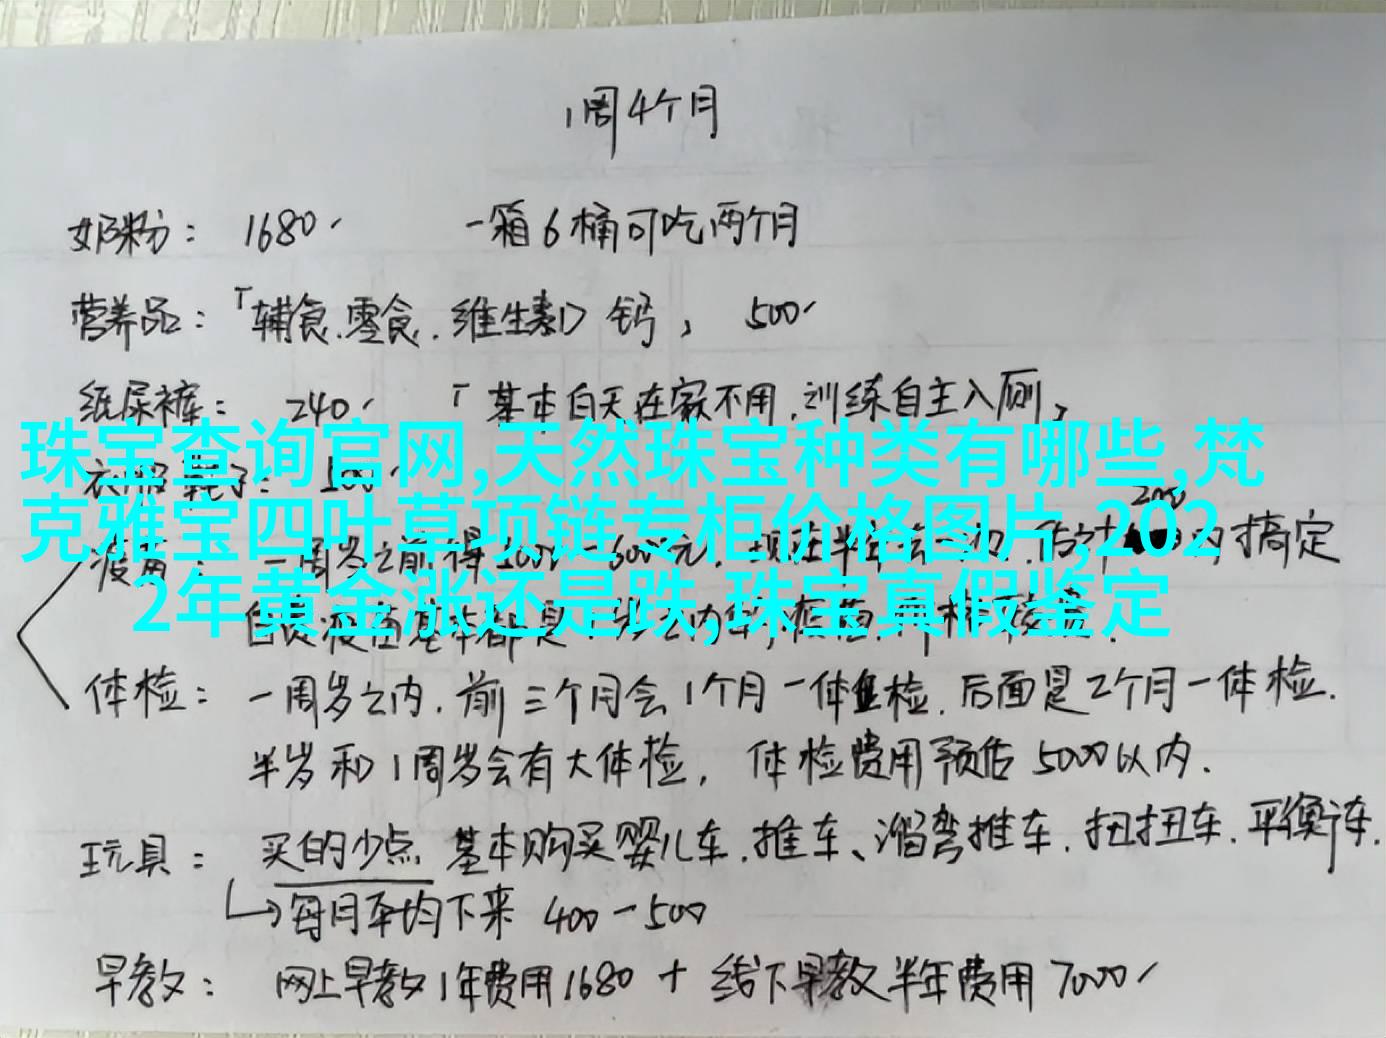 1周4个月
奶粉： 1680、 一箱6桶可吃两个月
营养品：「辅食.零食.维生素D 钙， 500、
纸尿裤： 240、 「基本白天在家不用.训练自主入厕，
珠宝查询官网,天然珠宝种类有哪些,梵
克雅宝四叶草项链专柜价格图片,202
2年黄金涨还是跌,珠宝真假鉴定
衣服鞋子： 500
一周岁之前 搞定
体检： 一周岁之内.前三个月会1个月一体检.后面是2个月一体检.
半岁和1周岁会有大体检， 体检费用预估5000以内.
玩具： 买的少点 基本购买婴儿车.推车、溜弯推车.扭扭车.平衡车.
每月平均下来 400-500
早教： 网上早教1年费用1680 + 线下早教半年费用7000、